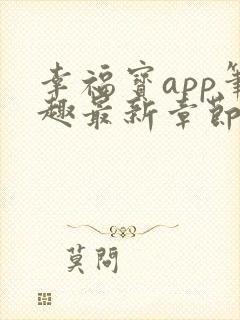 幸福宝app笔
趣最新章节
莫问